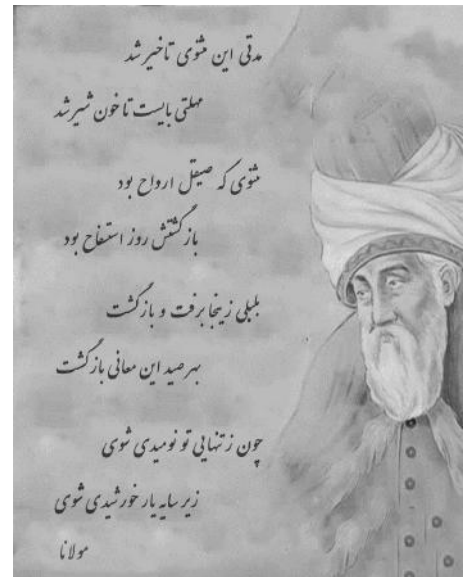 مدتی این مثنوی تاخیر شد
مهلتی بایست تا خون شیر شد
مثنوی که صیقل ارواح بود
بازگشتش روز استفتاح بود
بلبلی زینجا برفت و بازگشت
بهر صید این معانی بازگشت
چون ز تنهایی تو نومیدی شوی
زیر سایه یار خورشیدی شوی
مولانا